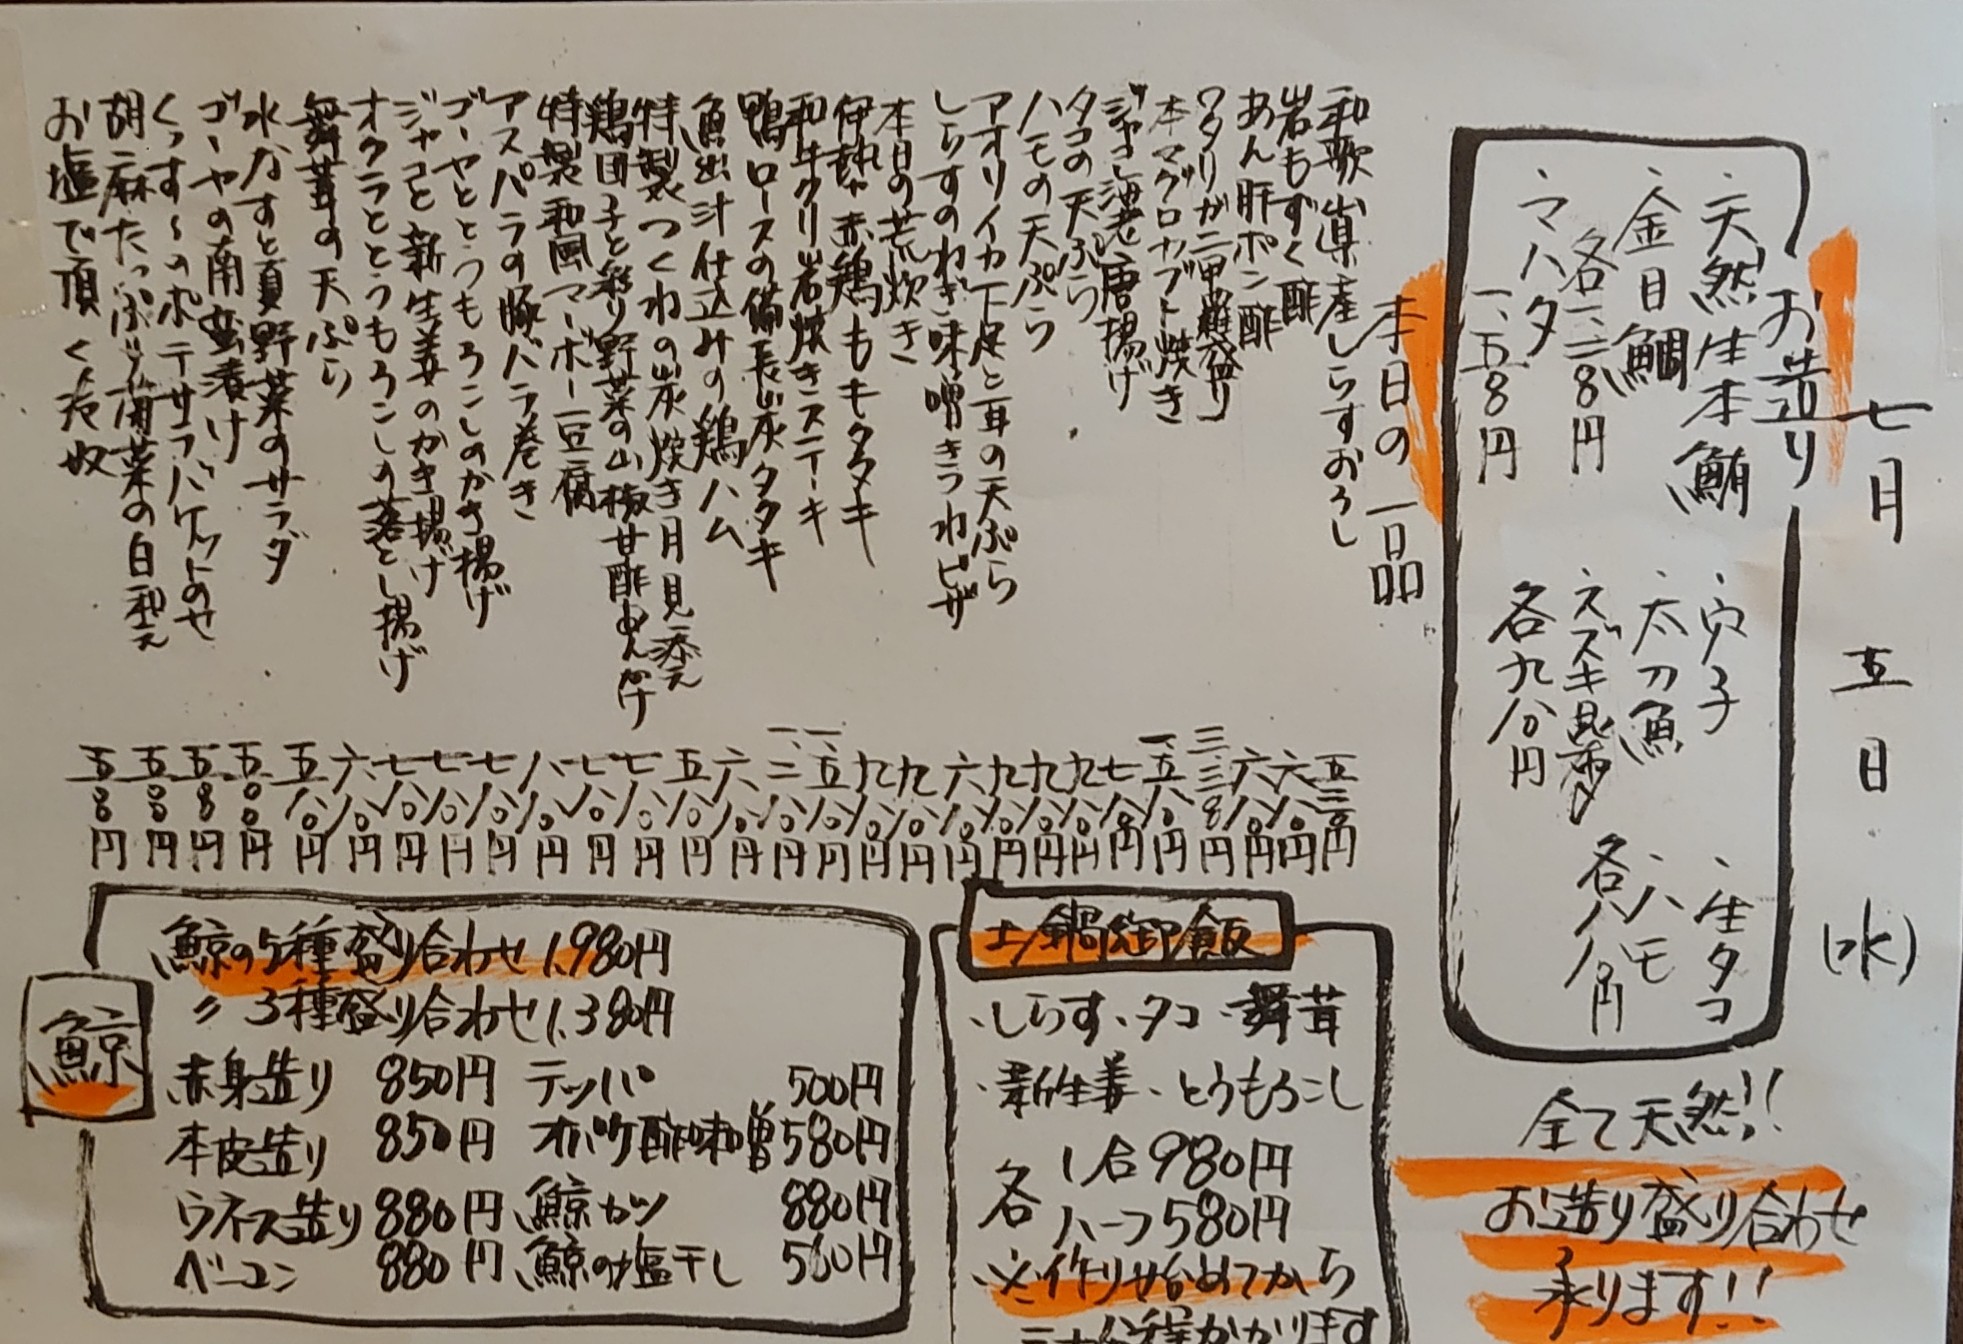 七月五日(水)
お造り
・天然生本鮪
・金目鯛
各一、二八〇円
・マハタ
一、五八〇円
・穴子
・太刀魚
・スズキ昆布〆
各九八〇円
・生タコ
・ハモ
各八八〇円
全て天然!!
お造り盛り合わせ
承ります!!
本日の一品
和歌山県産しらすおろし 五三〇円
岩もずく酢 六八〇円
あん肝ポン酢 六八〇円
ワタリガニ甲羅盛り 三、三八〇円
本マグロカブト焼き 一、五八〇円
ジャコと海老唐揚げ 七八〇円
タコの天ぷら 九八〇円
ハモの天ぷら 九八〇円
アオリイカ下足と耳の天ぷら 九八〇円
しらすのねぎ味噌きつねピザ 六八〇円
本日の荒炊き 九八〇円
伊勢赤鶏ももタタキ 九八〇円
和牛クリ岩焼きステーキ 一、五八〇円
鴨ロースの備長炭タタキ 一、二八〇円
魚出汁仕込みの鶏ハム 六八〇円
特製つくねの炭焼き月見添え 五八〇円
鶏団子と彩り野菜の山椒甘酢あんかけ 七八〇円
特製和風マーボー豆腐 七八〇円
アスパラの豚バラ巻き 八八〇円
ゴーヤととうもろこしのかき揚げ 七八〇円
ジャコと新生姜のかき揚げ 七八〇円
オクラととうもろこしの落とし揚げ 七八〇円
舞茸の天ぷら 六八〇円
水なすと夏野菜のサラダ 五八〇円
ゴーヤの南蛮漬け 五〇〇円
くっす〜のポテサラバケットのせ 五八〇円
胡麻たっぷり青菜の白和え 五〇〇円
お塩で頂く冷奴 五八〇円
土鍋御飯
・しらす・タコ・舞茸
・新生姜・とうもろこし
各
1合980円
ハーフ580円
※作り始めてから
三十分程かかります
鯨
鯨の5種盛り合わせ1,980円
〃3種盛り合わせ1,380円
赤身造り 850円 テッパ 500円
本皮造り 850円 オバケ酢味噌580円
ウネス造り880円 鯨カツ 880円
ベーコン 880円 鯨の塩干し 560円